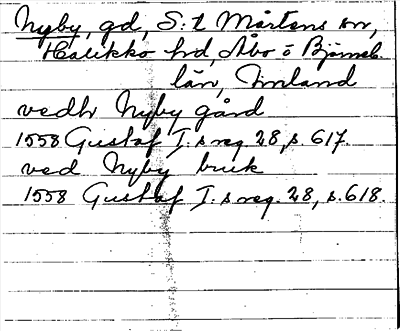 Nyby, gd, S:t Mårtens sn,
Halikko hd, Åbo o Björneb.
län, Finland
vedh Nyby gård
1558 Gustaf I.s reg. 28, s. 617.
ved Nyby bruk
1558 Gustaf I.s reg. 28, s. 618.